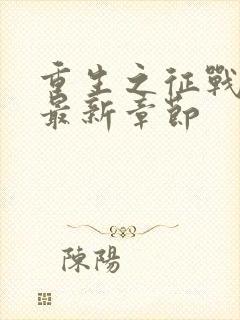 重生之征戰
最新章節
陳陽